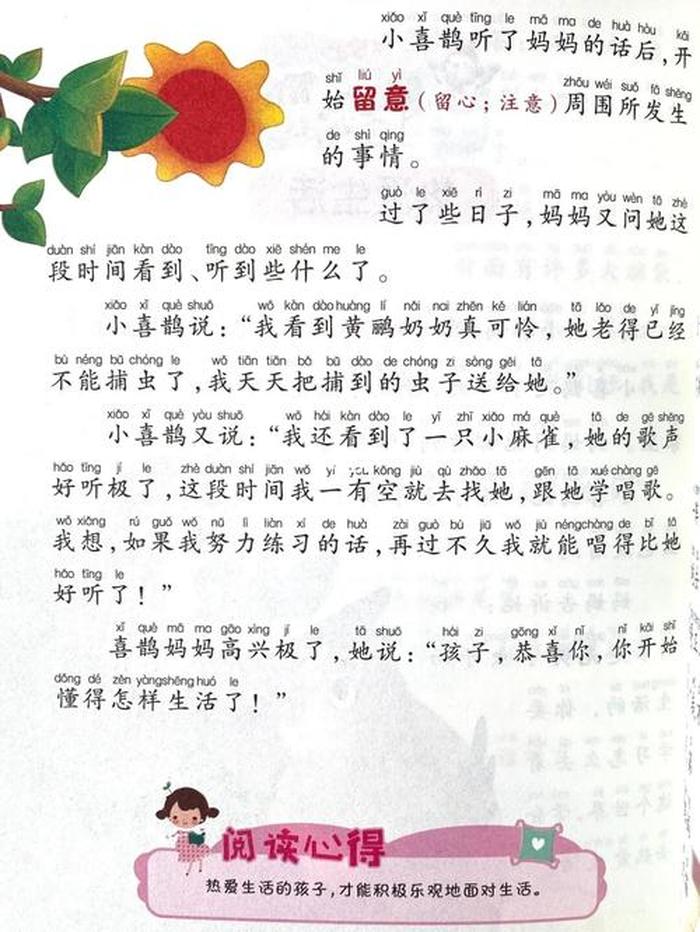 xiǎo xǐ què tīng le mā ma de huà hòu kāi
小喜鹊听了妈妈的话后,开
shǐ liú yì zhōu wéi suǒ fā shēng
始留意(留心;注意)周围所发生
de shì qing
的事情。
guò le xiē rì zi mā ma yòu wèn tā zhè
过了些日子,妈妈又问她这
duàn shí jiān kàn dào tīng dào xiē shén me le
段时间看到、听到些什么了。
xiǎo xǐ què shuō wǒ kàn dào huáng lí nǎi nai zhēn kě lián tā lǎo de yǐ jīng
小喜鹊说:“我看到黄鹂奶奶真可怜,她老得已经
bù néng bǔ chóng le wǒ tiān tiān bǎ bǔ dào de chóng zi sòng gěi tā
不能捕虫了,我天天把捕到的虫子送给她。”
xiǎo xǐ què yòu shuō wǒ hái kàn dào le yì zhī xiǎo má què tā de gē shēng
小喜鹊又说:“我还看到了一只小麻雀,她的歌声
hǎo tīng jí le zhè duàn shí jiān wǒ yì yǒu kòng jiù qù zhǎo tā gēn tā xué chàng gē
好听极了,这段时间我一有空就去找她,跟她学唱歌。
wǒ xiǎng rú guǒ wǒ nǔ lì liàn xí de huà zài guò bù jiǔ wǒ jiù néng chàng de bǐ tā
我想,如果我努力练习的话,再过不久我就能唱得比她
hǎo tīng le
好听了!”
xǐ què mā ma gāo xìng jí le tā shuō hái zi gōng xǐ nǐ nǐ kāi shǐ
喜鹊妈妈高兴极了,她说:“孩子,恭喜你,你开始
dǒng dé zěn yàng shēng huó le
懂得怎样生活了!”
阅读心得
热爱生活的孩子,才能积极乐观地面对生活。